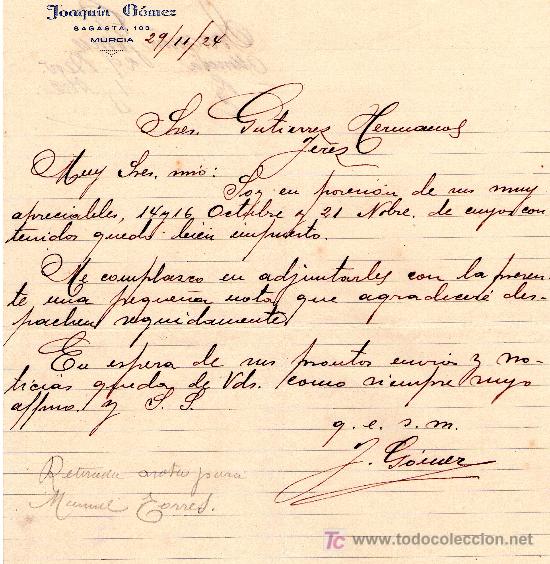 Joaquin Gómez
SAGASTA, 103
MURCIA
29/11/24
Sres. Gutierrez Hermanos
Jerez
Muy Sres. mio:
Soy en posesión de sus muy
apreciables, 14 y 16 Octubre y 21 Nobre. de cuyos con
tenidos quedo bien impuesto.
Me complazco en adjuntarles con la presen-
te, una pequeña nota que agradeceré des-
pachen seguidamente
En espera de sus prontos envios y no-
ticias queda de Vds. como siempre suyo
affmo. y S. S.
q. e. s. m.
J. Gómez
Retirada para
Manuel Torres.
TC www.todocoleccion.net